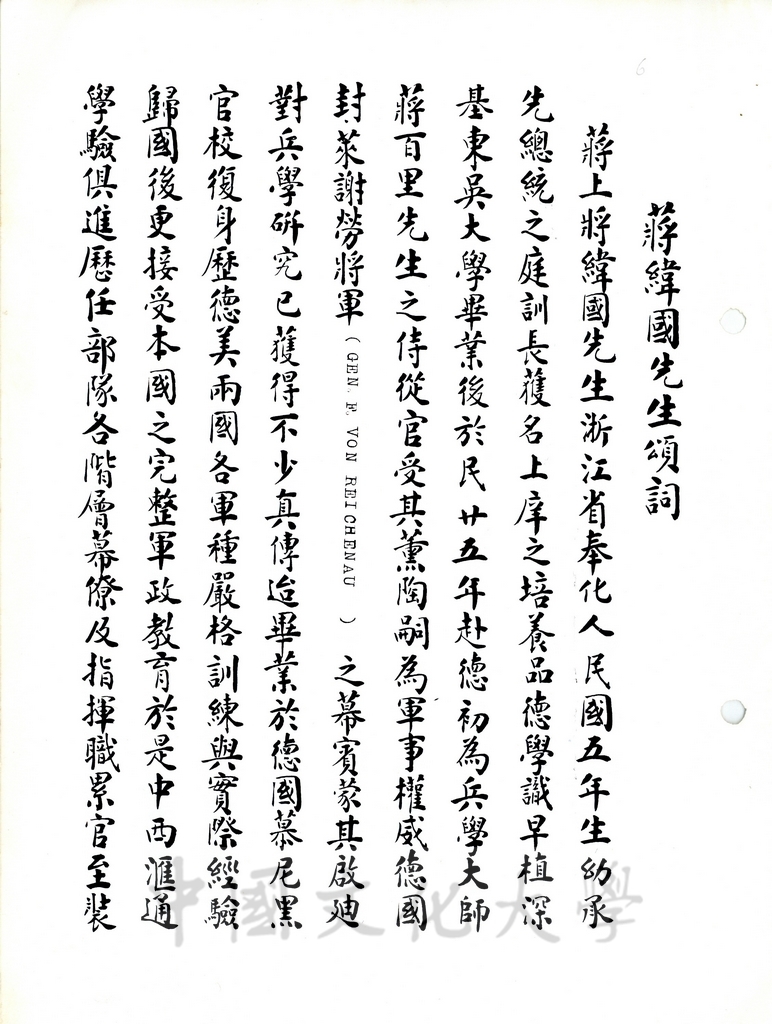 蔣緯國先生頌詞
蔣上將緯國先生浙江省奉化人民國五年生幼承
先總統之庭訓長獲名上庠之培養品德學識早植深
基東吳大學畢業後於民廿五年赴德初為兵學大師
蔣百里先生之侍從官受其薰陶嗣為軍事權威德國
封萊謝勞將軍（GEN. F. VON REICHENAU）之幕賓蒙其啟廸
對兵學研究已獲得不少真傳迨畢業於德國慕尼黑
官校復身歷德美兩國各軍種嚴格訓練與實際經驗
歸國後更接受本國之完整軍政教育於是中西滙通
學驗俱進歷任部隊各階層幕僚及指揮職累官至裝
中國文化大學
6